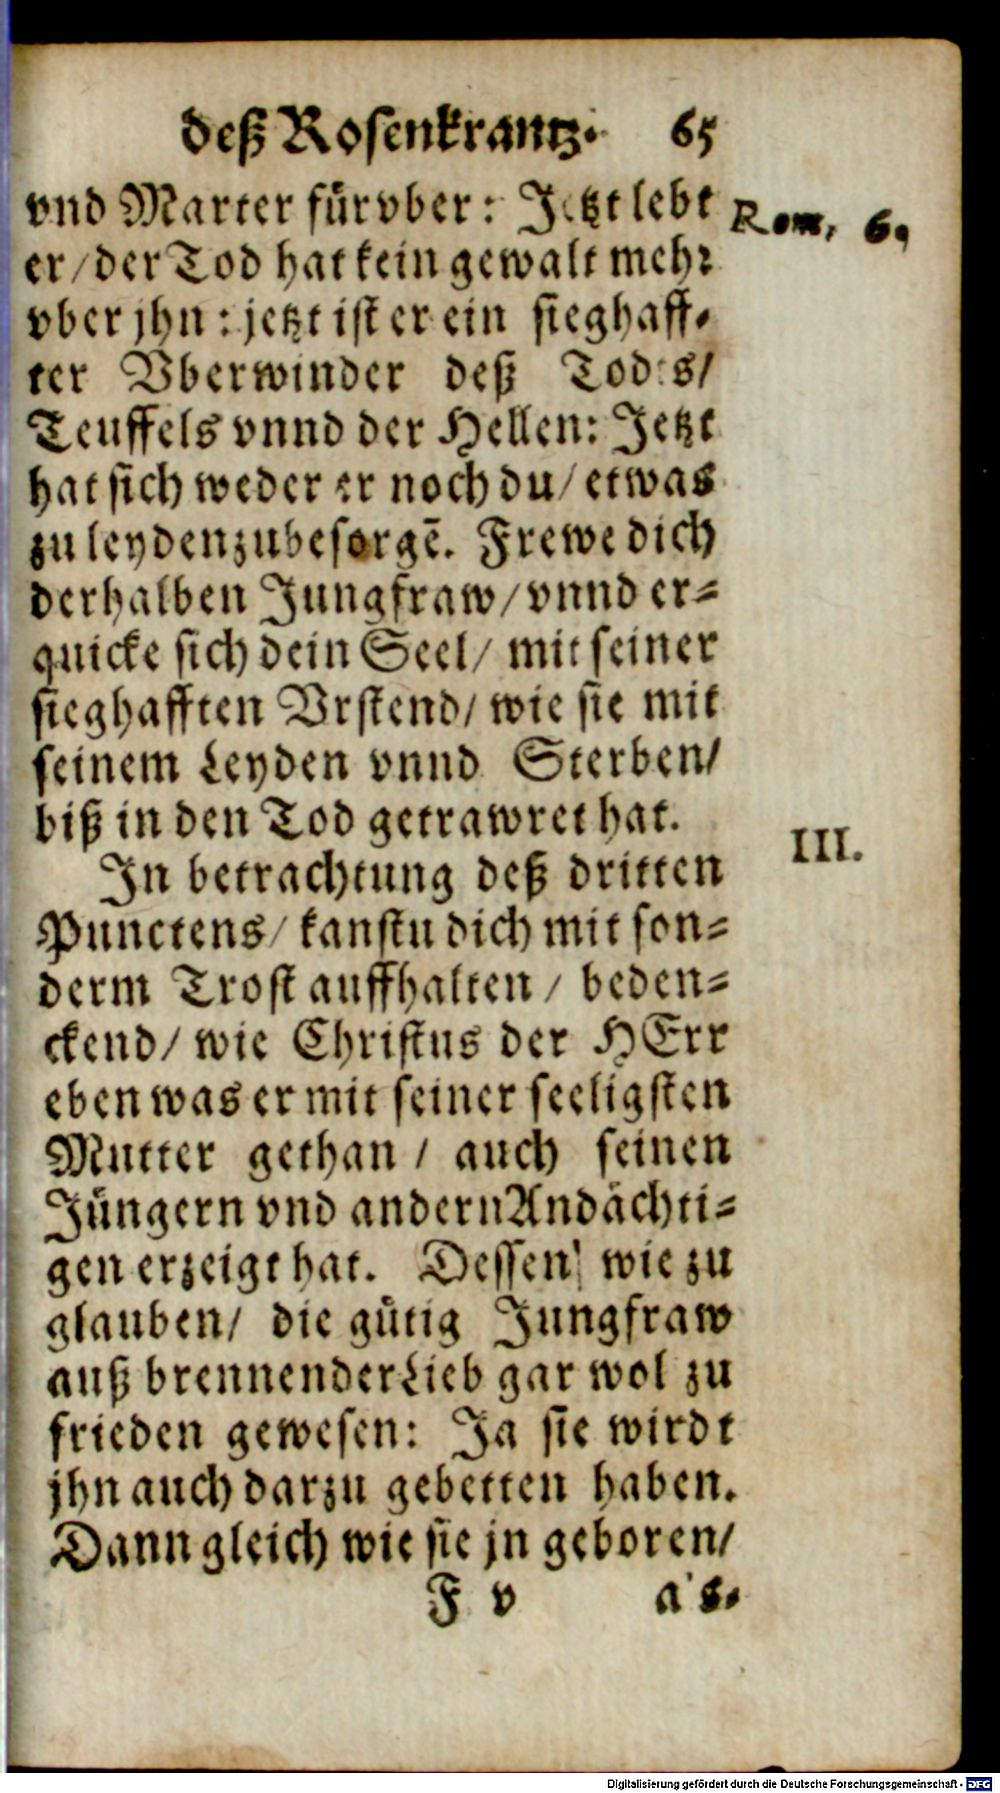 deß Rosenkrantz. 65
vnd Marter fürvber: Jetzt lebt
Rom. 6.
er/ der Tod hat kein gewalt mehr
vber jhn: jetzt ist er ein sieghaff-
ter Vberwinder deß Todes/
Teuffels vnnd der Hellen: Jetzt
hat sich weder er noch du/ etwas
zu leyden zubesorgē. Frewe dich
derhalben Jungfraw/ vnnd er-
quicke sich dein Seel/ mit seiner
sieghafften Vrstend/ wie sie mit
seinem Leyden vnnd Sterben/
biß in den Tod getrawret hat.
III.
In betrachtung deß dritten
Punctens/ kanstu dich mit son-
derm Trost auffhalten / beden-
ckend/ wie Christus der HErr
eben was er mit seiner seeligsten
Mutter gethan / auch seinen
Jüngern vnd andern Andächti-
gen erzeigt hat. Dessen wie zu
glauben/ die gütig Jungfraw
auß brennender Lieb gar wol zu
frieden gewesen: Ja sie wirdt
jhn auch darzu gebetten haben.
Dann gleich wie sie jn geboren/
F v
Digitalisierung gefördert durch die Deutsche Forschungsgemeinschaft - DFG